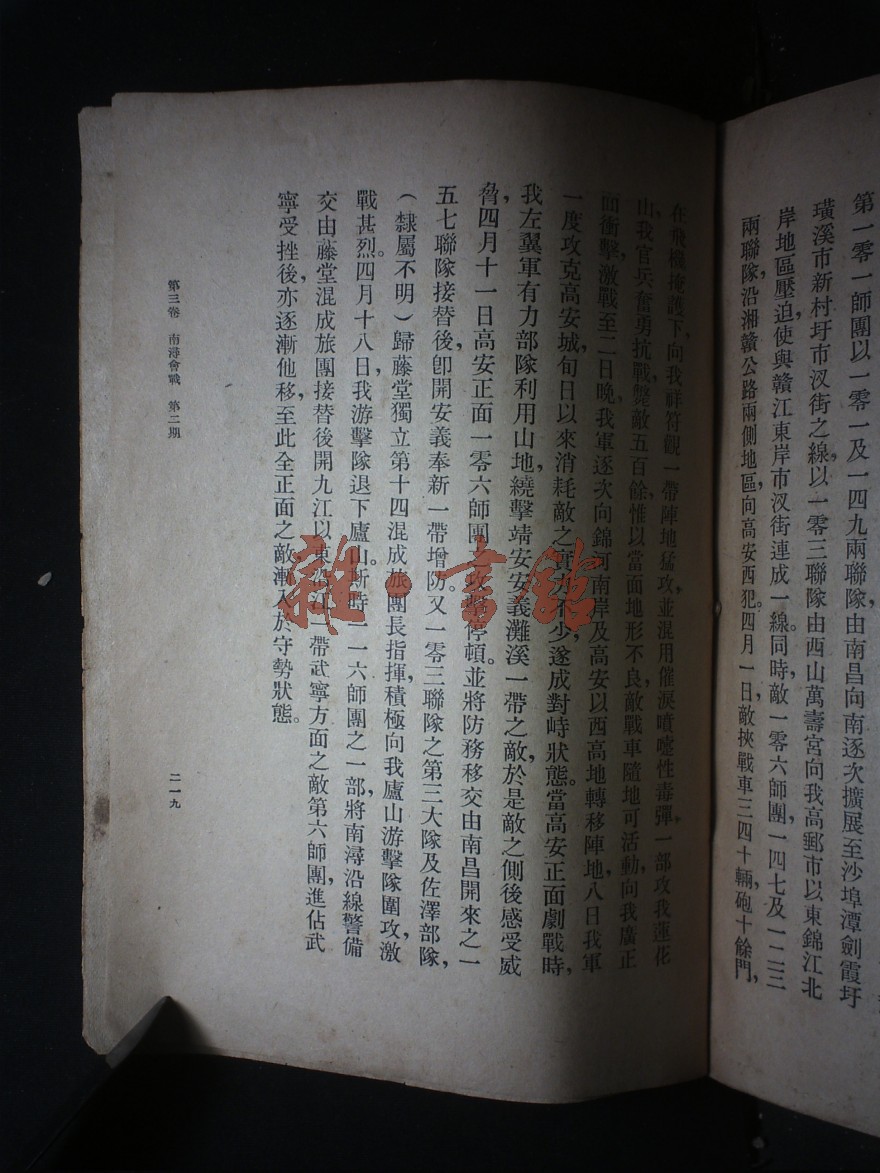 第一零一師團以一零一及一四九兩聯隊，由南昌向南逐次擴展至沙埠潭劍霞圩
璜溪市新村圩市汊街之線，以一零三聯隊由西山萬壽宮向我高郵市以東錦江北
岸地區壓迫，使與贛江東岸市汊街連成一線。同時敵一零六師團一四七及一二三
兩聯隊，沿湘贛公路兩側地區，向高安西犯。四月一日敵挾戰車三四十輛，砲十餘門，
在飛機掩護下，向我祥符觀一帶陣地猛攻，並混用催淚噴嚏性毒彈，一部攻我蓮花
山，我官兵奮勇抗戰，斃敵五百餘，惟以當面地形不良，敵戰車隨地可活動，向我廣正
面衝擊，激戰至二日晚，我軍逐次向錦河南岸及高安以西高地轉移陣地，八日我軍
一度攻克高安城，旬日以來，消耗敵之實力不少，遂成對峙狀態。當高安正面劇戰時，
我左翼軍有力部隊，利用山地，繞擊靖安安義灘溪一帶之敵，於是敵之側後感受威
脅，四月十一日高安正面一零六師團之攻擊停頓，並將防務移交由南昌開來之一
五七聯隊接替後，卽開安義奉新一帶增防。又一零三聯隊之第三大隊及佐澤部隊，
（隸屬不明）歸藤堂獨立第十四混成旅團長指揮，積極向我廬山游擊隊圍攻，激
戰甚烈。四月十八日，我游擊隊退下廬山。斯時一一六師團之一部，將南潯沿線警備
交由藤堂混成旅團接替後，開九江以東沿江一帶，武寧方面之敵第六師團，進佔武
寧受挫後，亦逐漸他移，至此全正面之敵，漸入於守勢狀態。
第三卷　南潯會戰　第二期
二一九
雜・書館